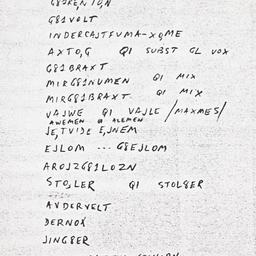 G81VOLT
INDERCASTFUMA-XOME
AXTO,G QI SUBST GL VOX
G81BRAXT
MIRG81NUMEN QI MIX
MIRG81BRAXT QI MIX
VAJWE QI VAJLE /MAXMES/
AWEMEN B ALEMEN
JE,TVIDE E,JNEM
EJLOM --- G8EJLOM
AROJZG81LOZN
STO,LER QI STOL8ER
AVDERVELT
DERNOX
JING8ER